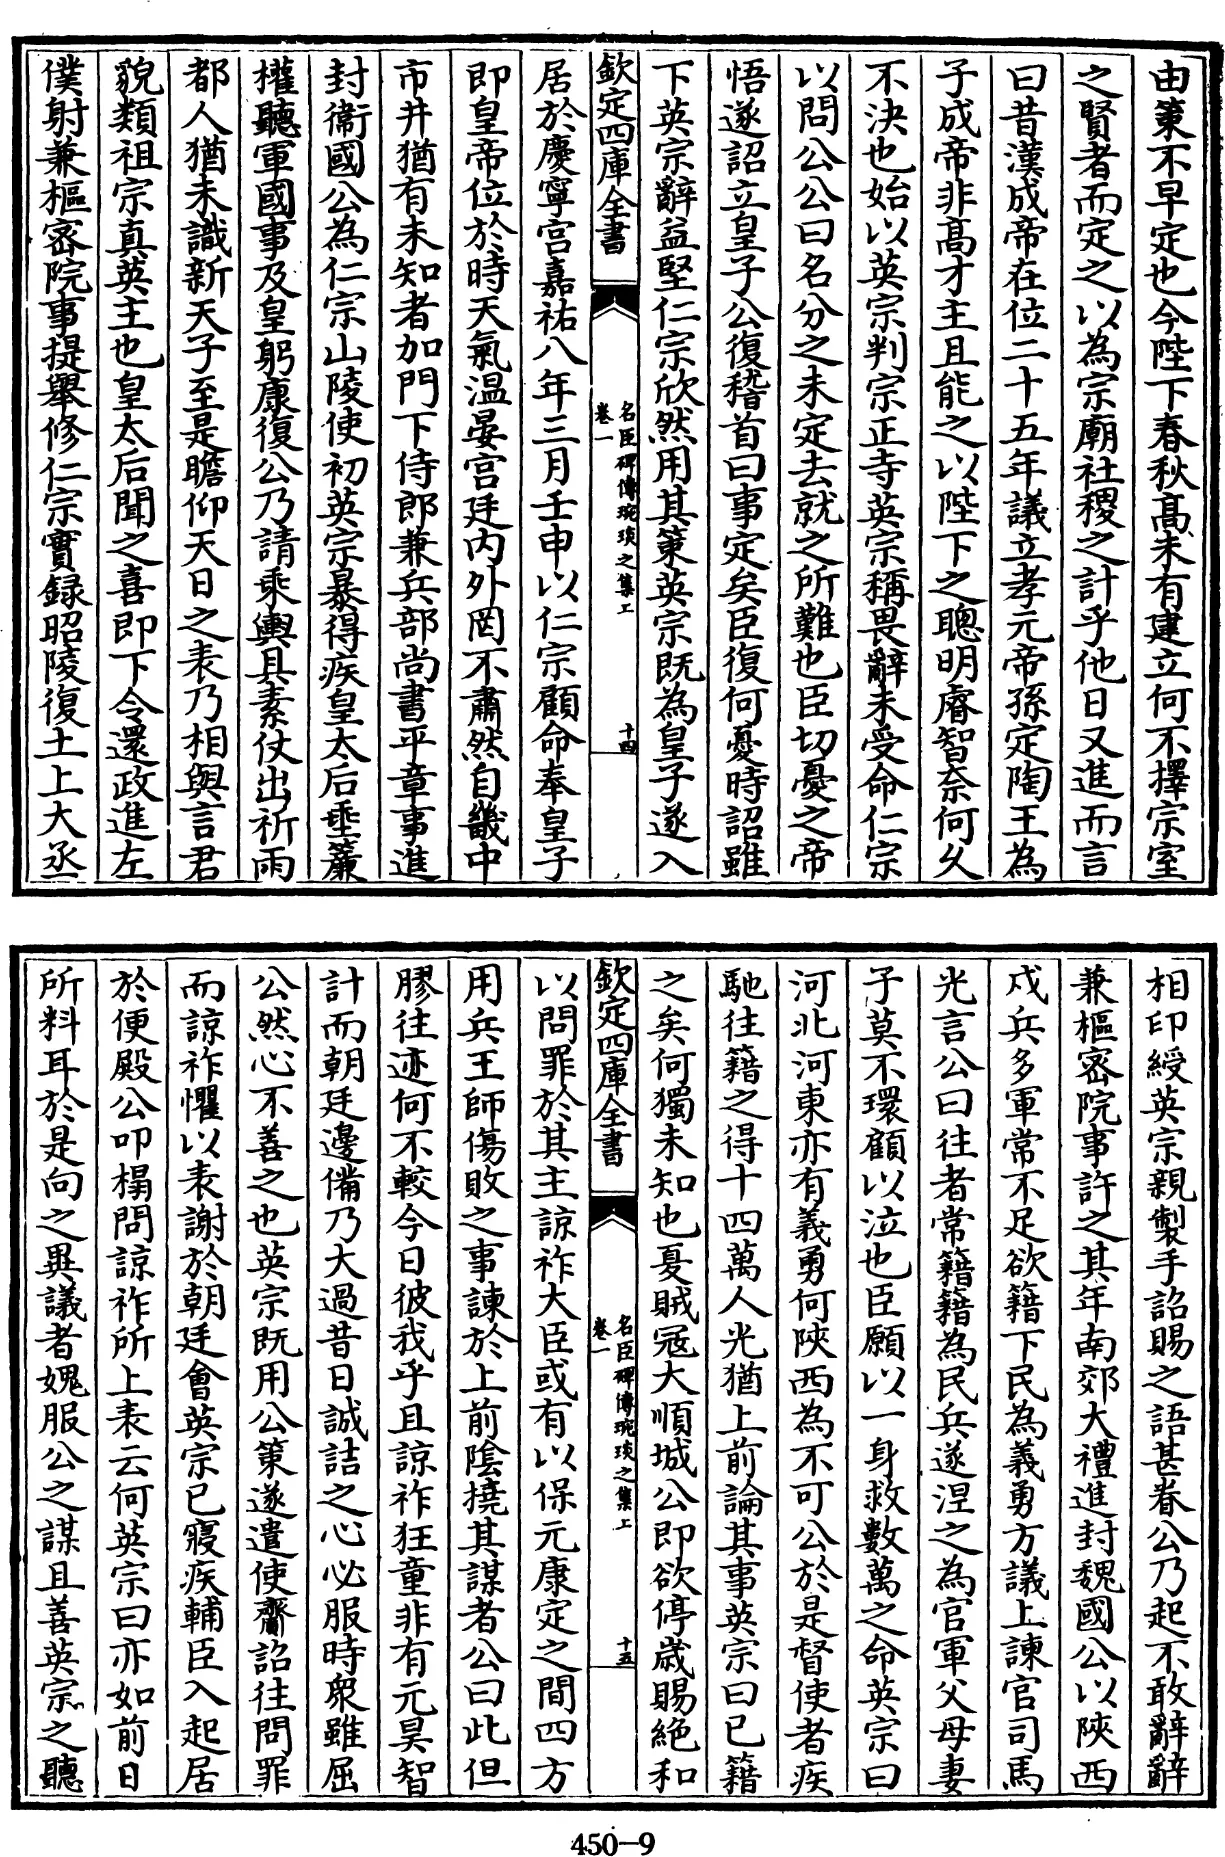 由策不早定也今陛下春秋高未有建立何不擇宗室
之賢者而定之以為宗廟社稷之計乎他日又進而言
曰昔漢成帝在位二十五年議立孝元帝孫定陶王為
子成帝非髙才主且能之以陛下之聰明睿智奈何久
不決也始以英宗判宗正寺英宗稱畏辭未受命仁宗
以問公公曰名分之未定去就之所難也臣切憂之帝
悟遂詔立皇子公復稽首曰事定矣臣復何憂時詔雖
下英宗辭益堅仁宗欣然用其策英宗既為皇子遂入
欽定四庫全書
名臣碑傳琬琰之集上
卷一
十四
居於慶寧宮嘉祐八年三月壬申以仁宗顧命奉皇子
即皇帝位於時天氣温晏宮廷内外罔不肅然自畿中
市井猶有未知者加門下侍郎兼兵部尚書平章事進
封衞國公為仁宗山陵使初英宗暴得疾皇太后垂簾
權聽軍國事及皇躬康復公乃請乘輿具素仗出祈雨
都人猶未識新天子至是瞻仰天日之表乃相與言君
貌類祖宗真英主也皇太后聞之喜即下令還政進左
僕射兼樞密院事提舉修仁宗實録昭陵復土上大丞
相印綬英宗親製手詔賜之語甚眷公乃起不敢辭辭
兼樞密院事許之其年南郊大禮進封魏國公以陜西
戍兵多軍常不足欲籍下民為義勇方議上諫官司馬
光言公曰往者常籍籍為民兵遂涅之為官軍父母妻
子莫不環顧以泣也臣願以一身救數萬之命英宗曰
河北河東亦有義勇何陜西為不可公於是督使者疾
馳往籍之得十四萬人光猶上前論其事英宗曰已籍
之矣何獨未知也夏賊宼大順城公即欲停歲賜絶和
欽定四庫全書
名臣碑傳琬琰之集上
卷一
十五
以問罪於其主諒祚大臣或有以保元康定之間四方
用兵王師傷敗之事諫於上前陰撓其謀者公曰此但
膠往迹何不較今日彼我乎且諒祚狂童非有元昊智
計而朝廷邊備乃大過昔日誠詰之心必服時衆雖屈
公然心不善之也英宗既用公策遂遣使齎詔往問罪
而諒祚懼以表謝於朝廷會英宗已寢疾輔臣入起居
於便殿公叩榻問諒祚所上表云何英宗曰亦如前日
所料耳於是向之異議者媿服公之謀且善英宗之聽
450-9